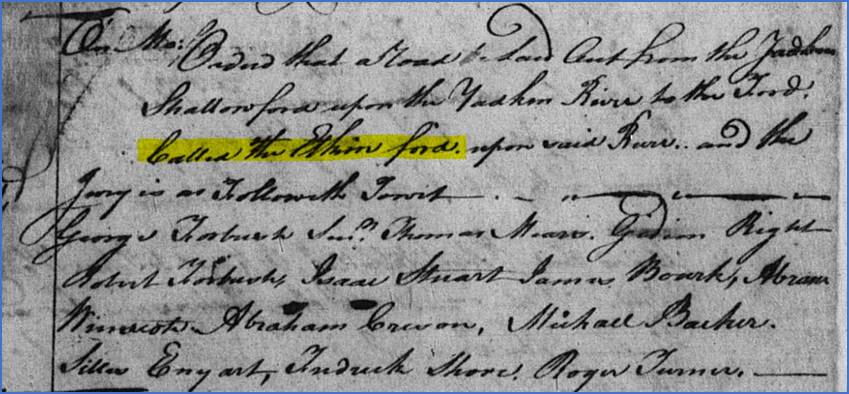 On Mo: Ordered that a Road be Laid Out from the
Shallowford upon the Yadkin River to the Ford.
Called the ford. upon said River.. and the
Jury is as Followith Towit
George Forbush Senr. Thomas Gidion Right
Robert Forbush, Isaac Stuart James Bourk, Abram
Abraham Crison, Michael Backer.
Silas Enyart, Fredrick Shore. Roger Turner.